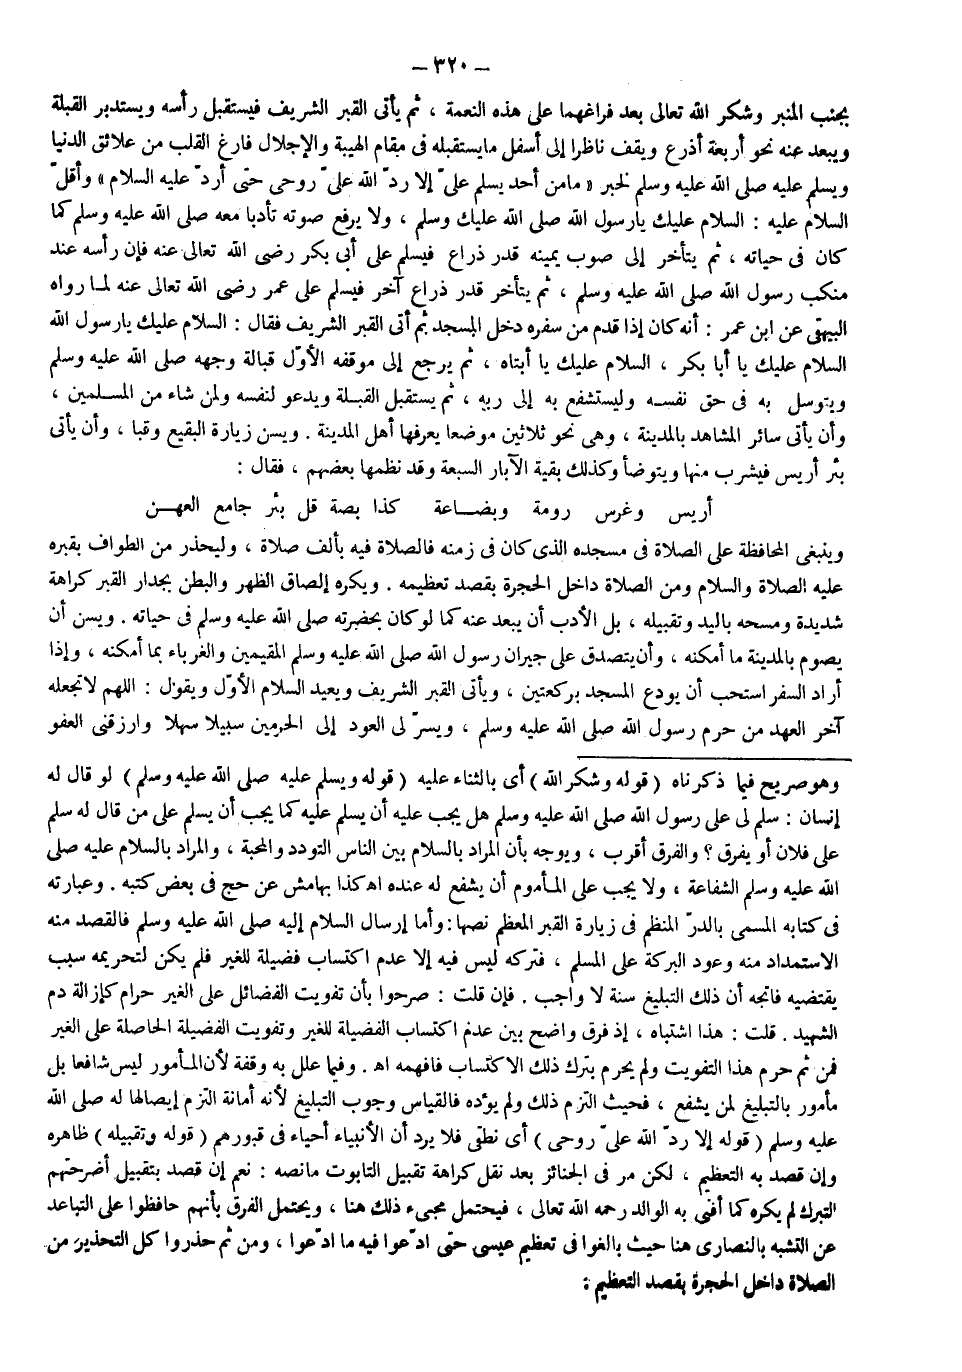 — ٣٢٠ —
بجنب المنبر وشكر الله تعالى بعد فراغهما على هذه النعمة ، ثم يأتى القبر الشريف فيستقبل رأسه ويستدبر القبلة
ويبعد عنه نحو أربعة أذرع ويقف ناظرا إلى أسفل مايستقبله فى مقام الهيبة والإجلال فارغ القلب من علائق الدنيا
ويسلم عليه صلى الله عليه وسلم لخبر « مامن أحد يسلم علىّ إلا ردّ الله علىّ روحى حتى أردّ عليه السلام » وأقلّ
السلام عليه : السلام عليك يارسول الله صلى الله عليك وسلم ، ولا يرفع صوته تأدبا معه صلى الله عليه وسلم كما
كان فى حياته ، ثم يتأخر إلى صوب يمينه قدر ذراع فيسلم على أبى بكر رضى الله تعالى عنه فإن رأسه عند
منكب رسول الله صلى الله عليه وسلم ، ثم يتأخر قدر ذراع آخر فيسلم على عمر رضى الله تعالى عنه لما رواه
البيهقى عن ابن عمر : أنه كان إذا قدم من سفره دخل المسجد ثم أتى القبر الشريف فقال : السلام عليك يارسول الله
السلام عليك يا أبا بكر ، السلام عليك يا أبتاه ، ثم يرجع إلى موقفه الأوّل قبالة وجهه صلى الله عليه وسلم
ويتوسل به فى حق نفسه وليستشفع به إلى ربه ، ثم يستقبل القبلة ويدعو لنفسه ولمن شاء من المسلمين ،
وأن يأتى سائر المشاهد بالمدينة ، وهى نحو ثلاثين موضعا يعرفها أهل المدينة . ويسن زيارة البقيع وقبا ، وأن يأتى
بئر أريس فيشرب منها ويتوضأ وكذلك بقية الآبار السبعة وقد نظمها بعضهم ، فقال :
أريس وغرس رومة وبضاعة كذا بصة قل بئر جامع العهن
وينبغى المحافظة على الصلاة فى مسجده الذى كان فى زمنه فالصلاة فيه بألف صلاة ، وليحذر من الطواف بقبره
عليه الصلاة والسلام ومن الصلاة داخل الحجرة بقصد تعظيمه . ويكره إلصاق الظهر والبطن بجدار القبر كراهة
شديدة ومسحه باليد وتقبيله ، بل الأدب أن يبعد عنه كما لو كان بحضرته صلى الله عليه وسلم فى حياته . ويسن أن
يصوم بالمدينة ما أمكنه ، وأن يتصدق على جيران رسول الله صلى الله عليه وسلم المقيمين والغرباء بما أمكنه ، وإذا
أراد السفر استحب أن يودع المسجد بركعتين ، ويأتى القبر الشريف ويعيد السلام الأوّل ويقول : اللهم لاتجعله
آخر العهد من حرم رسول الله صلى الله عليه وسلم ، ويسرّ لى العود إلى الحرمين سبيلا سهلا وارزقنى العفو
وهو صريح فيما ذكرناه ( قوله وشكر الله ) أى بالثناء عليه ( قوله ويسلم عليه صلى الله عليه وسلم ) لو قال له
إنسان : سلم لى على رسول الله صلى الله عليه وسلم هل يجب عليه أن يسلم عليه كما يجب أن يسلم على من قال له سلم
على فلان أو يفرق ؟ والفرق أقرب ، ويوجه بأن المراد بالسلام بين الناس التودد والمحبة ، والمراد بالسلام عليه صلى
الله عليه وسلم الشفاعة ، ولا يجب على المأموم أن يشفع له عنده اه كذا بهامش عن حج فى بعض كتبه . وعبارته
فى كتابه المسمى بالدرّ المنظم فى زيارة القبر المعظم نصها : وأما إرسال السلام إليه صلى الله عليه وسلم فالقصد منه
الاستمداد منه وعود البركة على المسلم ، فتركه ليس فيه إلا عدم اكتساب فضيلة للغير فلم يكن لتحريمه سبب
يقتضيه فاتجه أن ذلك التبليغ سنة لا واجب . فإن قلت : صرحوا بأن تفويت الفضائل على الغير حرام كإزالة دم
الشهيد . قلت : هذا اشتباه ، إذ فرق واضح بين عدم اكتساب الفضيلة للغير وتفويت الفضيلة الحاصلة على الغير
فمن ثم حرم هذا التفويت ولم يحرم بترك ذلك الاكتساب فافهمه اه . وفيما علل به وقفة لأن المأمور ليس شافعا بل
مأمور بالتبليغ لمن يشفع ، فحيث التزم ذلك ولم يؤده فالقياس وجوب التبليغ لأنه أمانة التزم إيصالها له صلى الله
عليه وسلم ( قوله إلا ردّ الله علىّ روحى ) أى نطقى فلا يرد أن الأنبياء أحياء فى قبورهم ( قوله وتقبيله ) ظاهره
وإن قصد به التعظيم ، لكن مر فى الجنائز بعد نقل كراهة تقبيل التابوت مانصه : نعم إن قصد بتقبيل أضرحتهم
التبرك لم يكره كما أفتى به الوالد رحمه الله تعالى ، فيحتمل مجىء ذلك هنا ، ويحتمل الفرق بأنهم حافظوا على التباعد
عن التشبه بالنصارى هنا حيث بالغوا فى تعظيم عيسى حتى ادّعوا فيه ما ادّعوا ، ومن ثم حذروا كل التحذير من
الصلاة داخل الحجرة بقصد التعظيم :